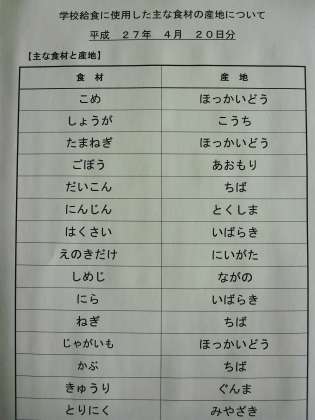 学校給食に使用した主な食材の産地について
平成　２７年　４月　２０日分
【主な食材と産地】
食　材　産　地
こめ　ほっかいどう
しょうが　こうち
たまねぎ　ほっかいどう
ごぼう　あおもり
だいこん　ちば
にんじん　とくしま
はくさい　いばらき
えのきだけ　にいがた
しめじ　ながの
にら　いばらき
ねぎ　ちば
じゃがいも　ほっかいどう
かぶ　ちば
きゅうり　ぐんま
とりにく　みやざき